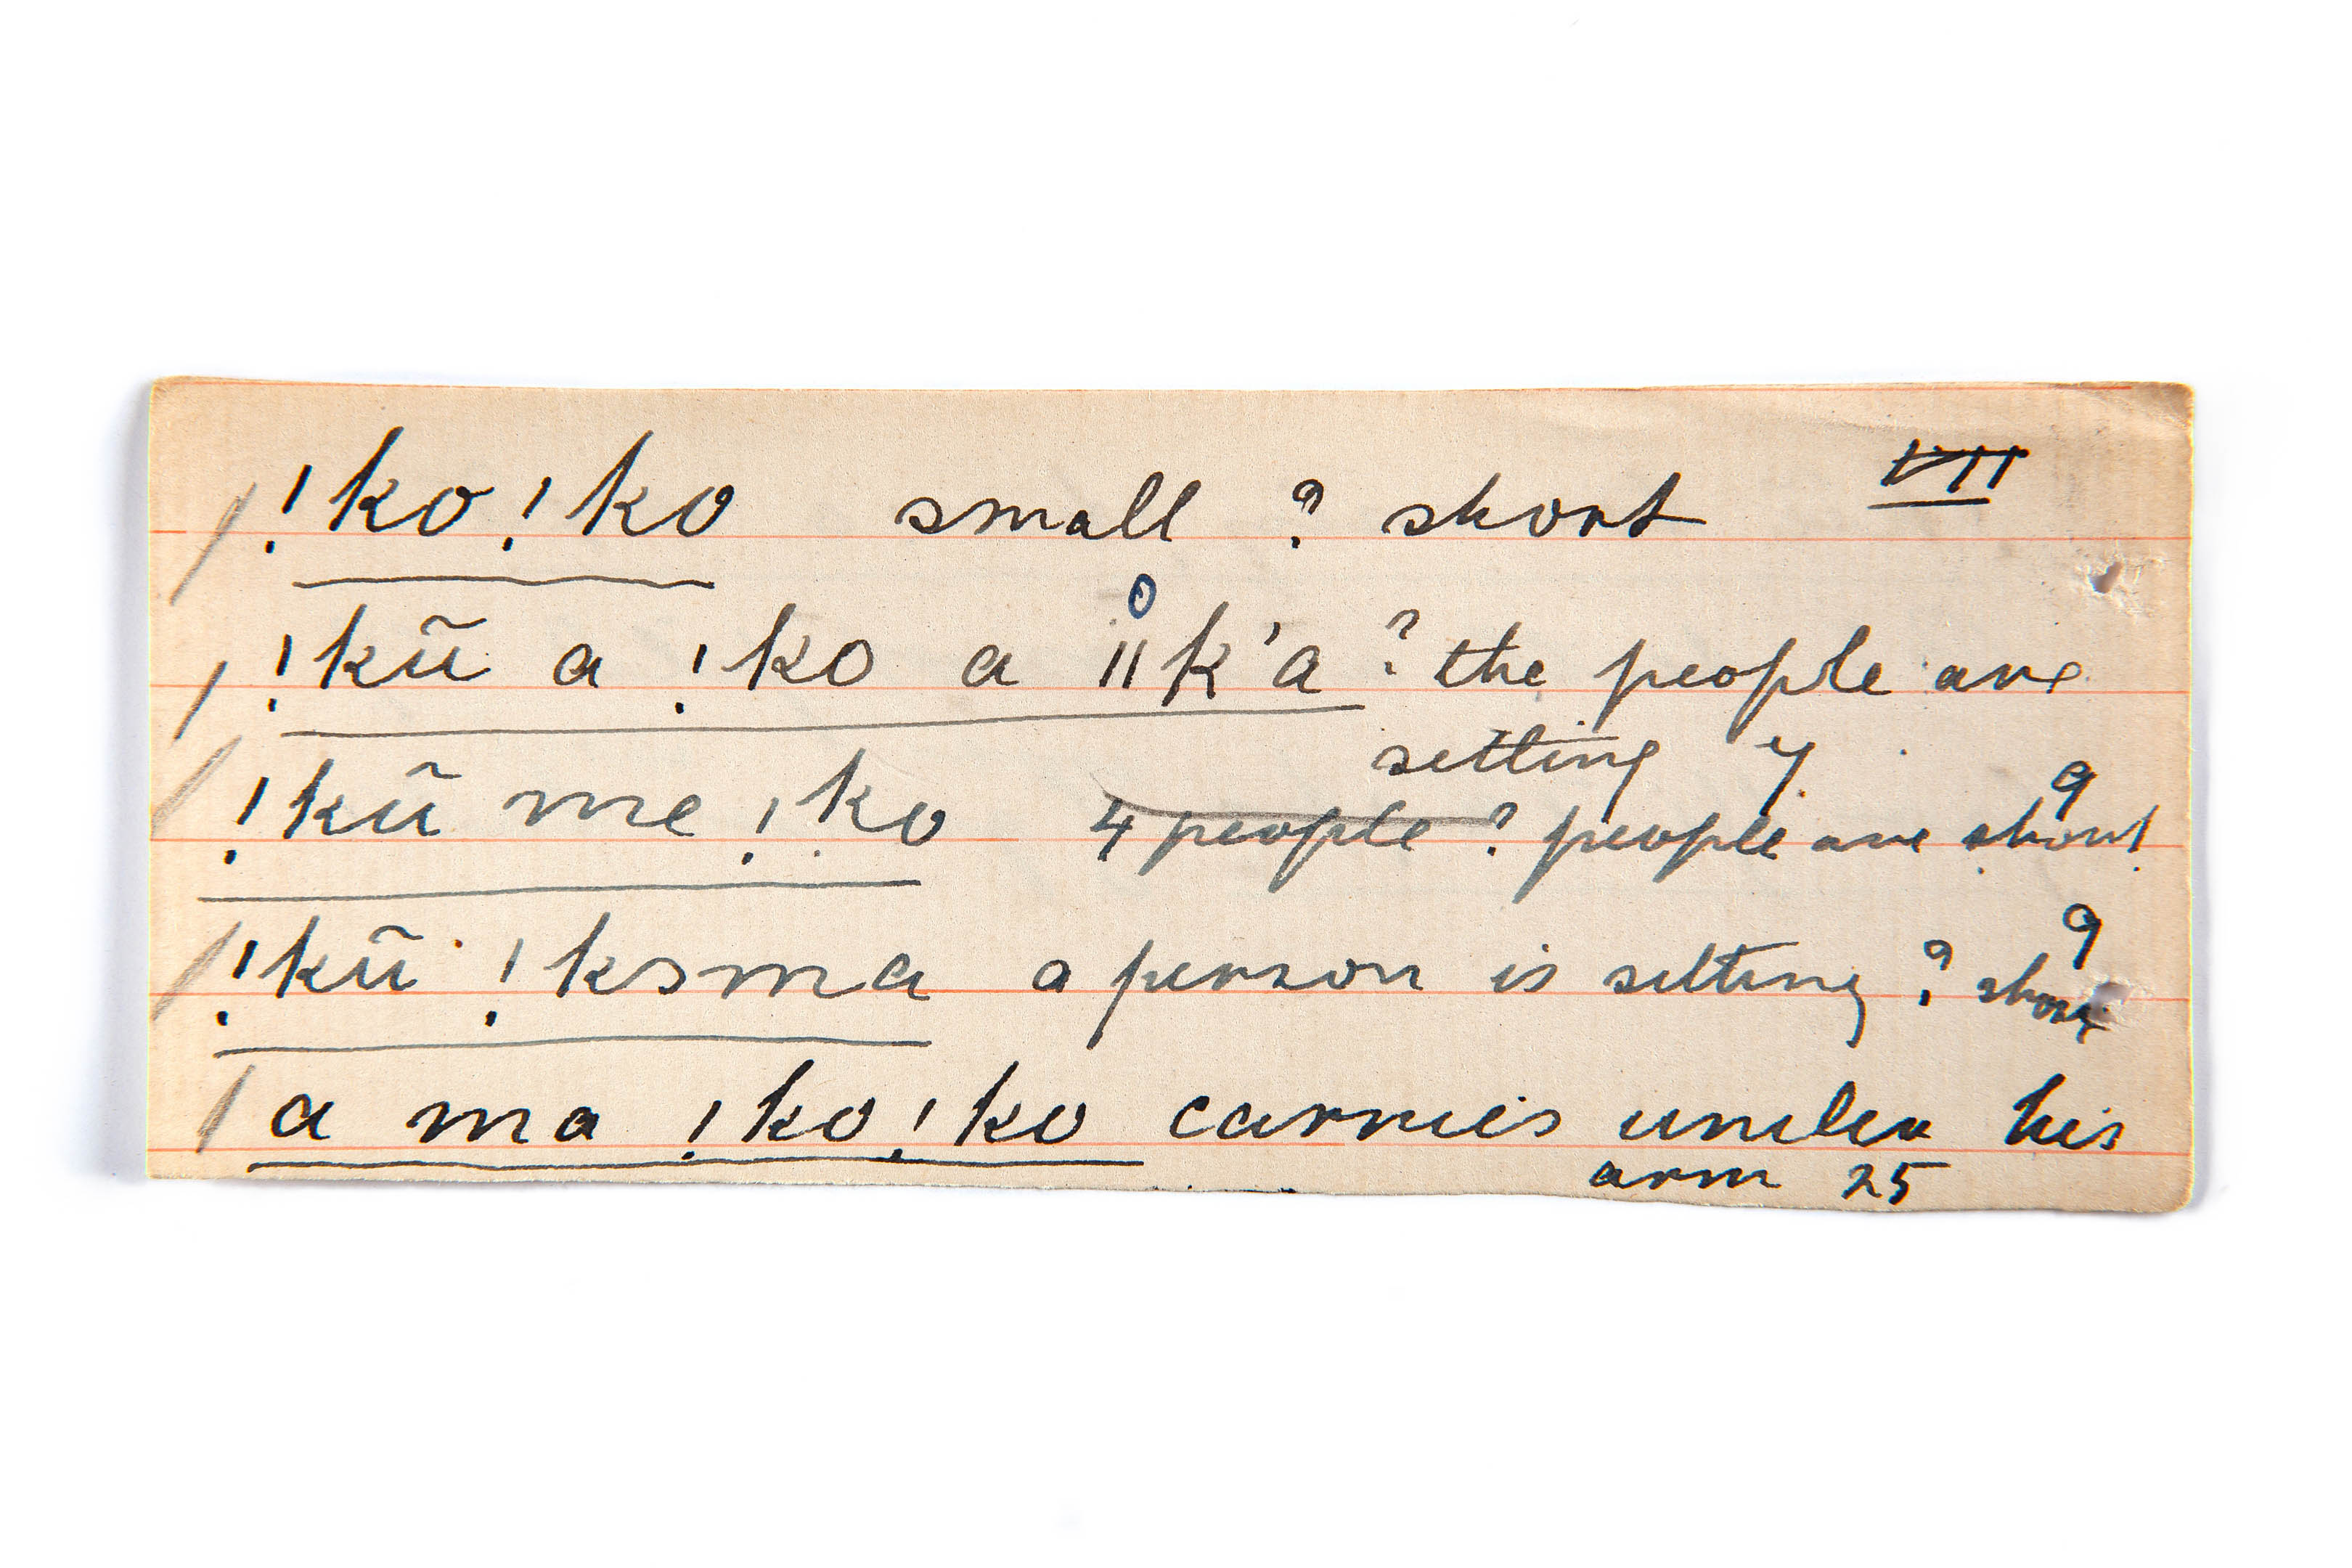 !ko!ko small ? short VII
!kũ a !ko a ǁk'a ? the people are
setting y
!kũ me !ko 4 people ? people are short 9
!kũ !ksma a person is setting ? short 9
a ma !ko!ko carries under his
arm 25